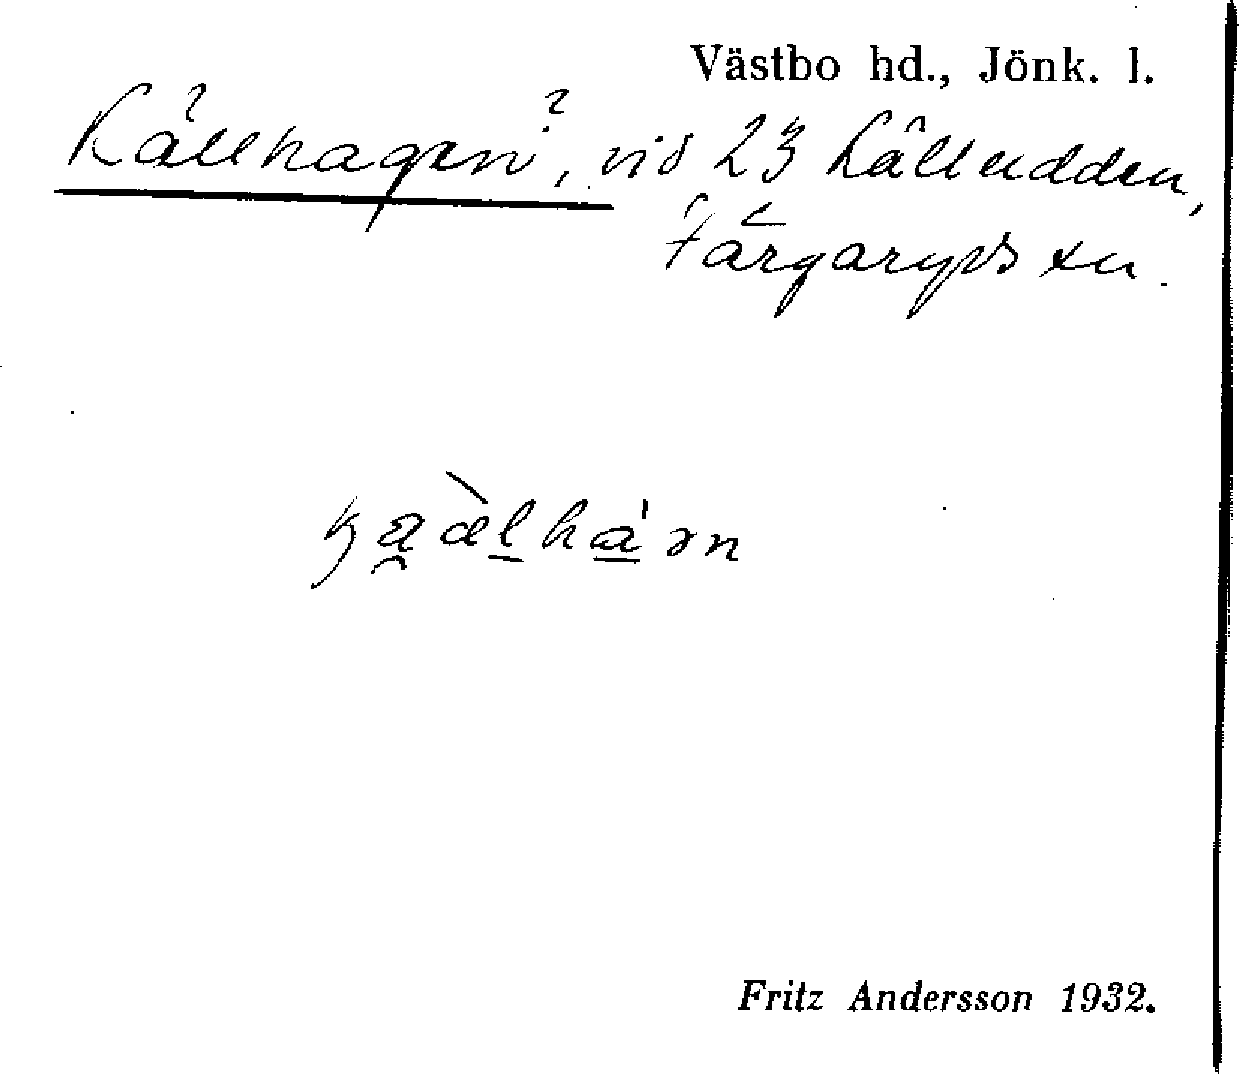 Västbo hd., Jönk. l.
Källhagen?, vid 23 Källudden,
Färgaryds sn.
Fritz Andersson 1932.